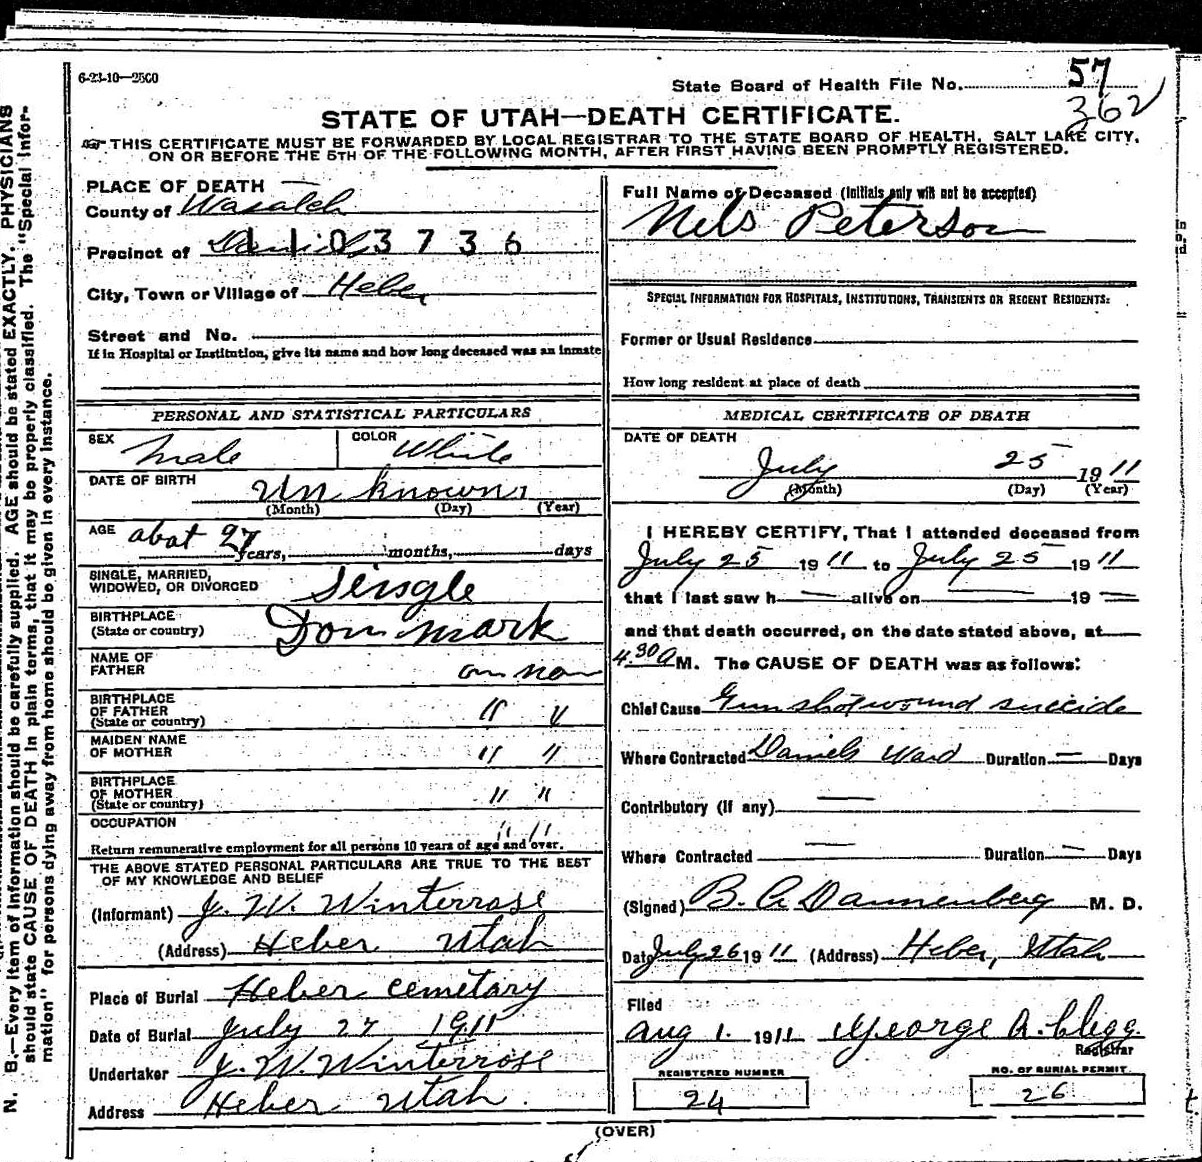 6-23-10—2500
State Board of Health File No. 57
362
STATE OF UTAH—DEATH CERTIFICATE.
THIS CERTIFICATE MUST BE FORWARDED BY LOCAL REGISTRAR TO THE STATE BOARD OF HEALTH, SALT LAKE CITY,
ON OR BEFORE THE 5TH OF THE FOLLOWING MONTH, AFTER FIRST HAVING BEEN PROMPTLY REGISTERED.
PLACE OF DEATH
County of Wasatch
Precinct of Daniels 1103736
City, Town or Village of Heber
Street and No.
If in Hospital or Institution, give its name and how long deceased was an inmate
PERSONAL AND STATISTICAL PARTICULARS
SEX Male
COLOR White
DATE OF BIRTH Unknown
(Month) (Day) (Year)
AGE abot 27 years, months, days
SINGLE, MARRIED,
WIDOWED, OR DIVORCED Seisgle
BIRTHPLACE
(State or country) Donmark
NAME OF
FATHER un non
BIRTHPLACE
OF FATHER
(State or country) " "
MAIDEN NAME
OF MOTHER " "
BIRTHPLACE
OF MOTHER
(State or country) " "
OCCUPATION " "
Return remunerative employment for all persons 10 years of age and over.
THE ABOVE STATED PERSONAL PARTICULARS ARE TRUE TO THE BEST
OF MY KNOWLEDGE AND BELIEF
(Informant) J. W. Winterrose
(Address) Heber Utah
Place of Burial Heber cemetary
Date of Burial July 27 1911
Undertaker J. W. Winterrose
Address Heber Utah.
Full Name of Deceased (Initials only will not be accepted)
Nels Peterson
SPECIAL INFORMATION FOR HOSPITALS, INSTITUTIONS, TRANSIENTS OR RECENT RESIDENTS:
Former or Usual Residence
How long resident at place of death
MEDICAL CERTIFICATE OF DEATH
DATE OF DEATH
July 25 1911
(Month) (Day) (Year)
I HEREBY CERTIFY, That I attended deceased from
July 25 1911 to July 25 1911
that I last saw h — alive on — 19 —
and that death occurred, on the date stated above, at
4.30 A M. The CAUSE OF DEATH was as follows:
Chief Cause Gun shot wound suicide
Where Contracted Daniels Ward Duration — Days
Contributory (if any) —
Where Contracted — Duration — Days
(Signed) B. A. Dannenberg M. D.
Date July 26 1911 (Address) Heber, Utah
Filed
Aug 1. 1911 George A. Clegg
Registrar
REGISTERED NUMBER
24
NO. OF BURIAL PERMIT
26
(OVER)
N. B.—Every item of information should be carefully supplied. AGE should be stated EXACTLY. PHYSICIANS
should state CAUSE OF DEATH in plain terms, that it may be properly classified. The "Special Infor-
mation" for persons dying away from home should be given in every instance.